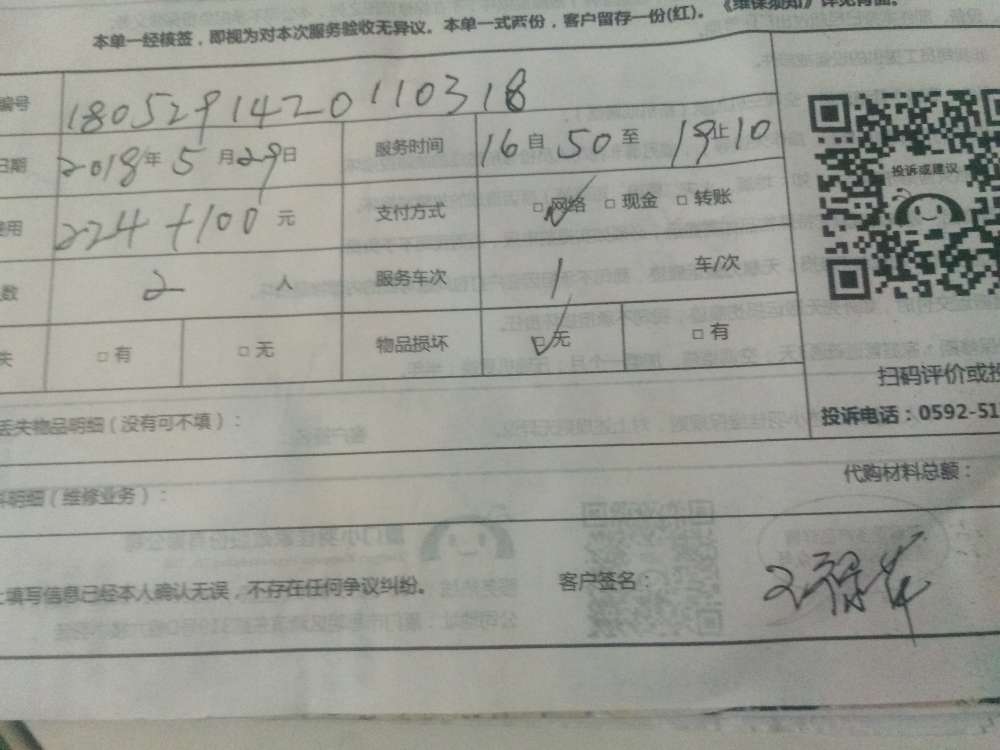 本单一经核签，即视为对本次服务验收无异议。本单一式两份，客户留存一份(红)。《维保须知》详见背面。
编号 1805291420110318
日期 2018年5月29日 服务时间 16自50至19止10
费用 224+100元 支付方式 □网络 □现金 □转账
数 2 人 服务车次 1 车/次
失 □有 □无 物品损坏 □无 □有
投诉或建议
扫码评价或投
投诉电话：0592-51
丢失物品明细（没有可不填）：
料明细（维修业务）： 代购材料总额：
上填写信息已经本人确认无误，不存在任何争议纠纷。 客户签名：